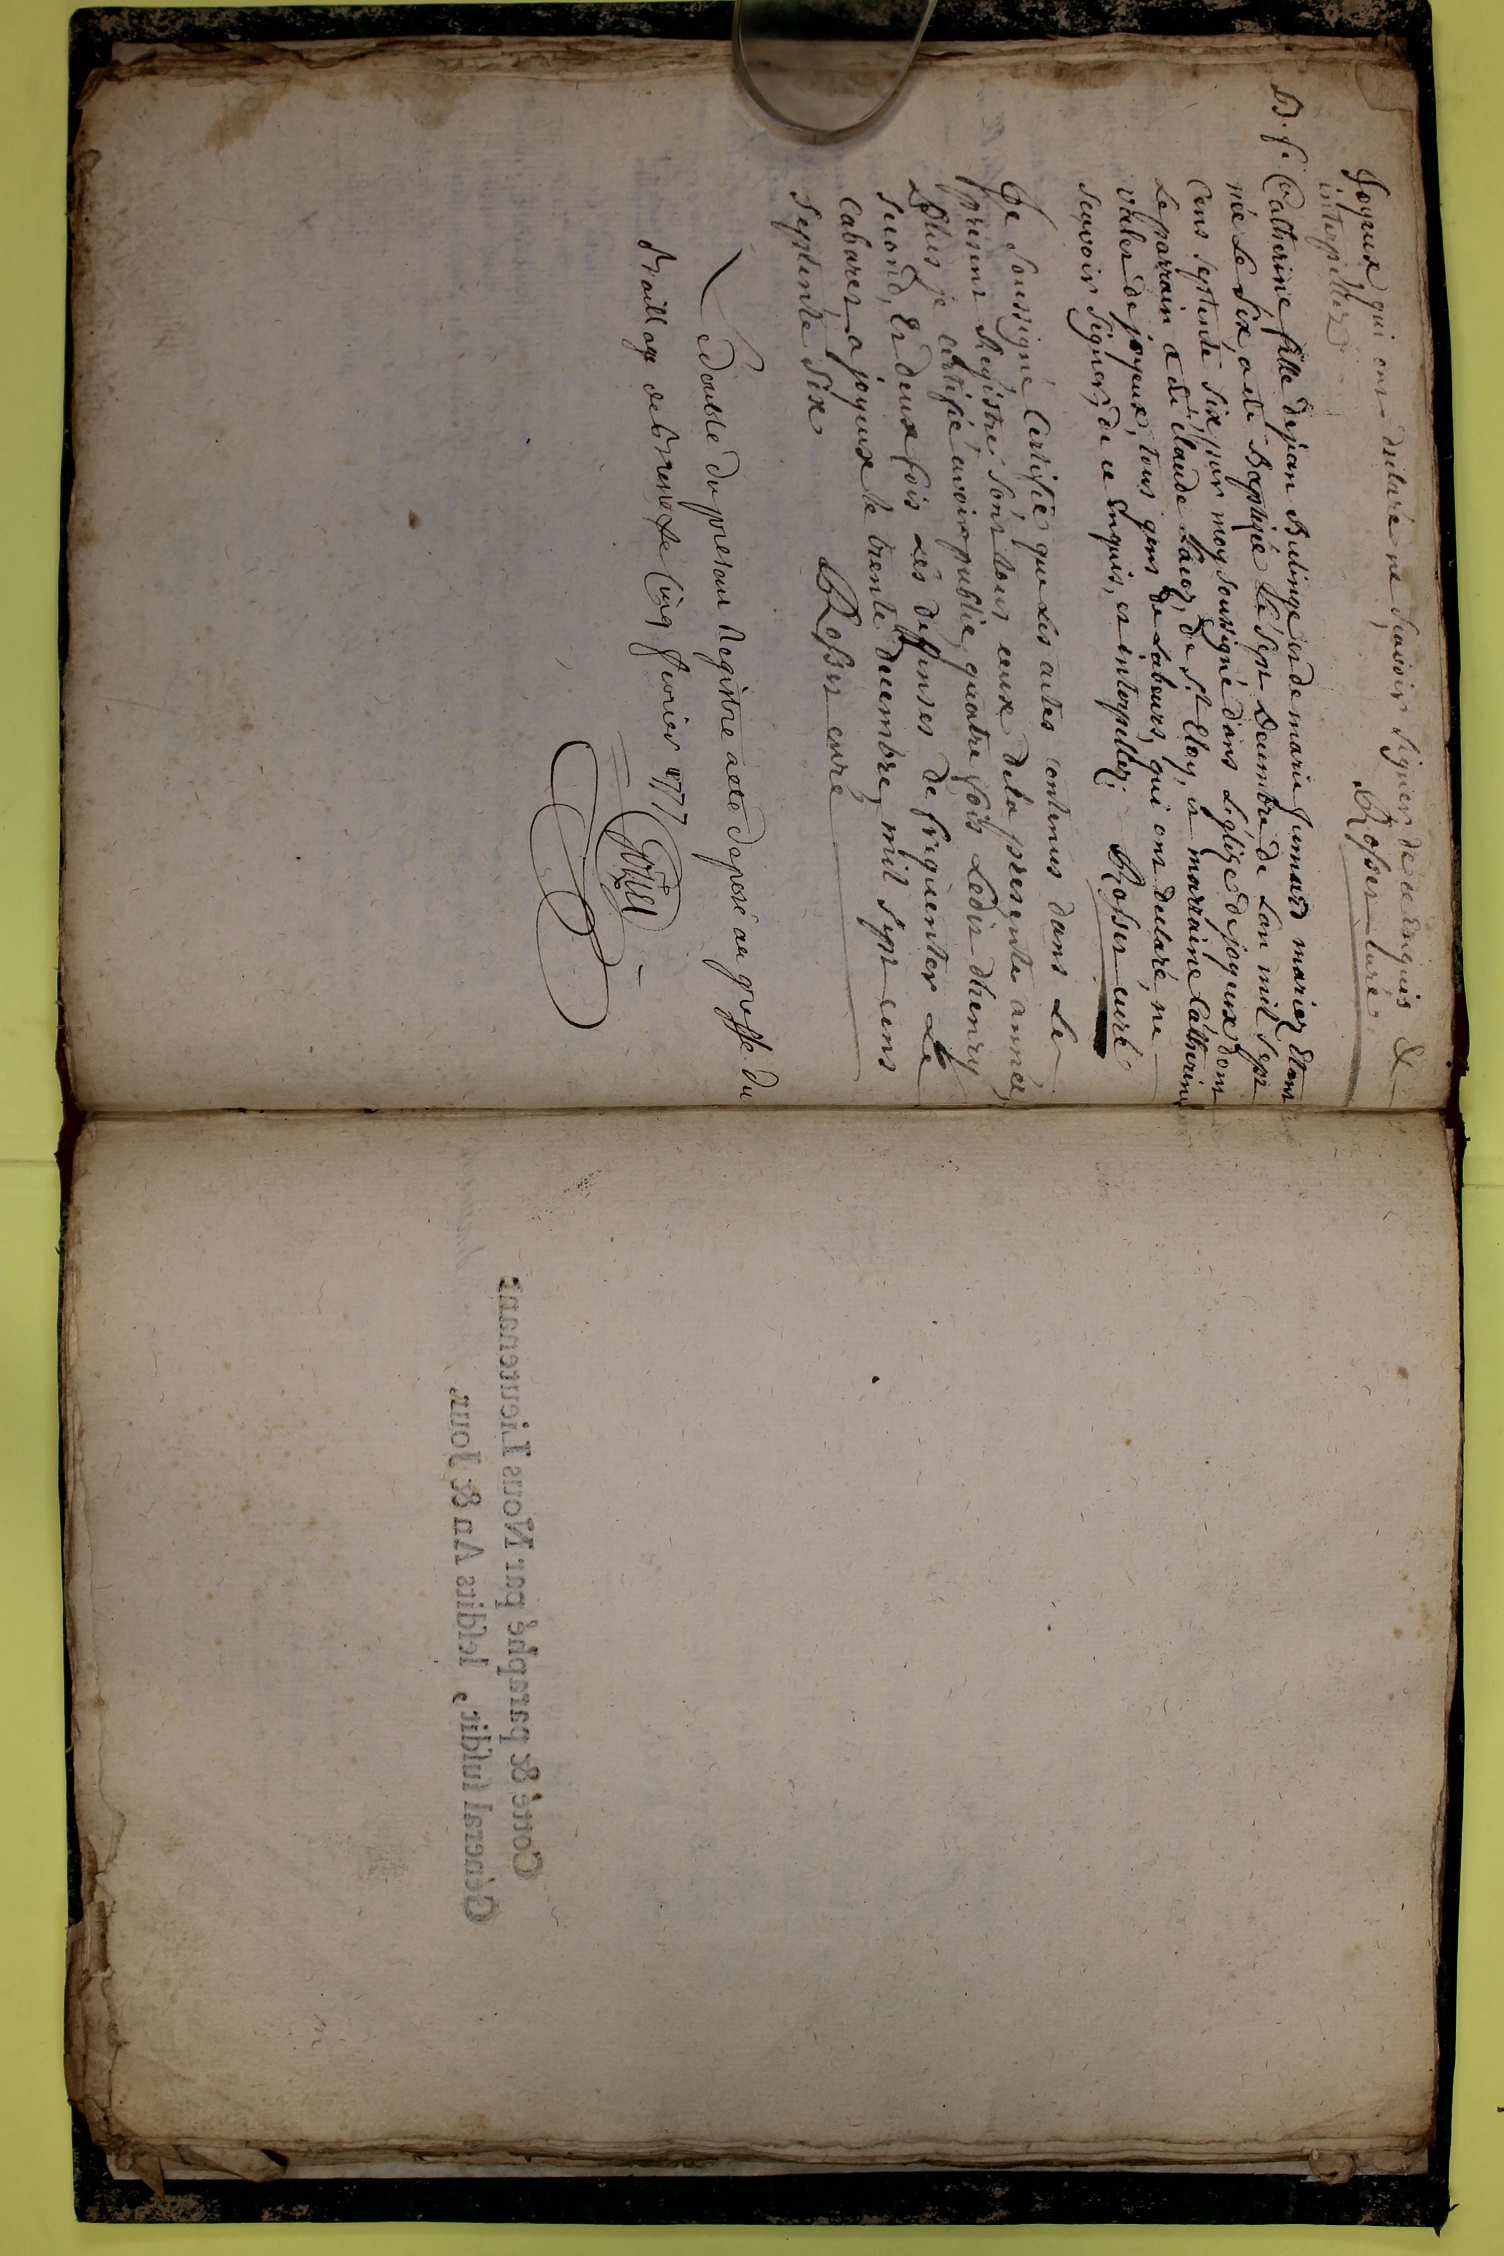 Joyeux qui ont declaré ne scavoir signer de ce enquis &
interpellez Rosset curé
B. f. Catherine fille de jean Bulinge et de marie Jumard mariez etant
née Le six, a eté Baptisée Le sept Decembre de Lan mil sept
cens septente six par moy soussigné dans L'église de joyeux dont
Le parrain a été claude de St Eloy, et marraine Catherine
valet de joyeux, tous gens de Labeurs, qui ont declaré ne
scavoir signer, de ce enquis, et interpellez. Rosset curé
Je soussigné Certifie que Les actes contenus dans Le
present Registre sont tous ceux de la presente année,
De plus je certifie avoir publié quatre fois Ledit dhenry
second, Et deux fois Les deffenses de frequenter Le
Cabaret a joyeux le trente decembre mil sept cens
septente six Rosset curé
Le double du present Registre a eté deposé au greffe du
Baillage de Bresse Le Cinq fevrier 1777
Cotté & paraphé par Nous Lieutenant
Général susdit, lesdits An & Jour.